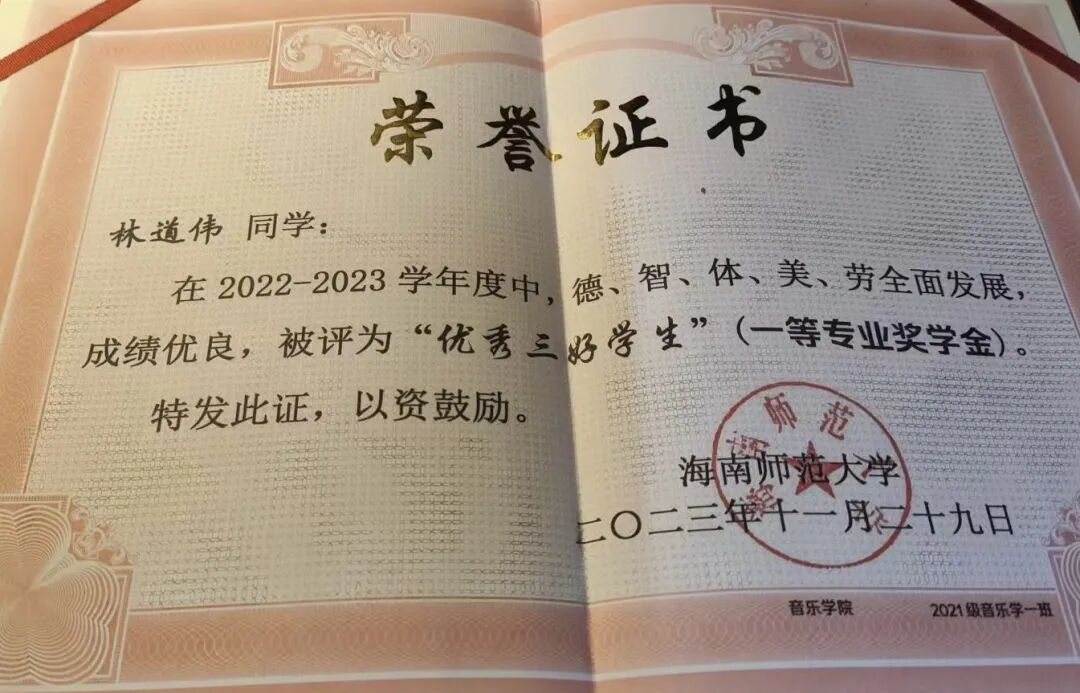 荣誉证书
林道伟 同学：
在2022-2023学年度中，德、智、体、美、劳全面发展，
成绩优良，被评为“优秀三好学生”（一等专业奖学金）。
特发此证，以资鼓励。
海南师范大学
二〇二三年十一月二十九日
音乐学院 2021级音乐学一班
海南师范大学